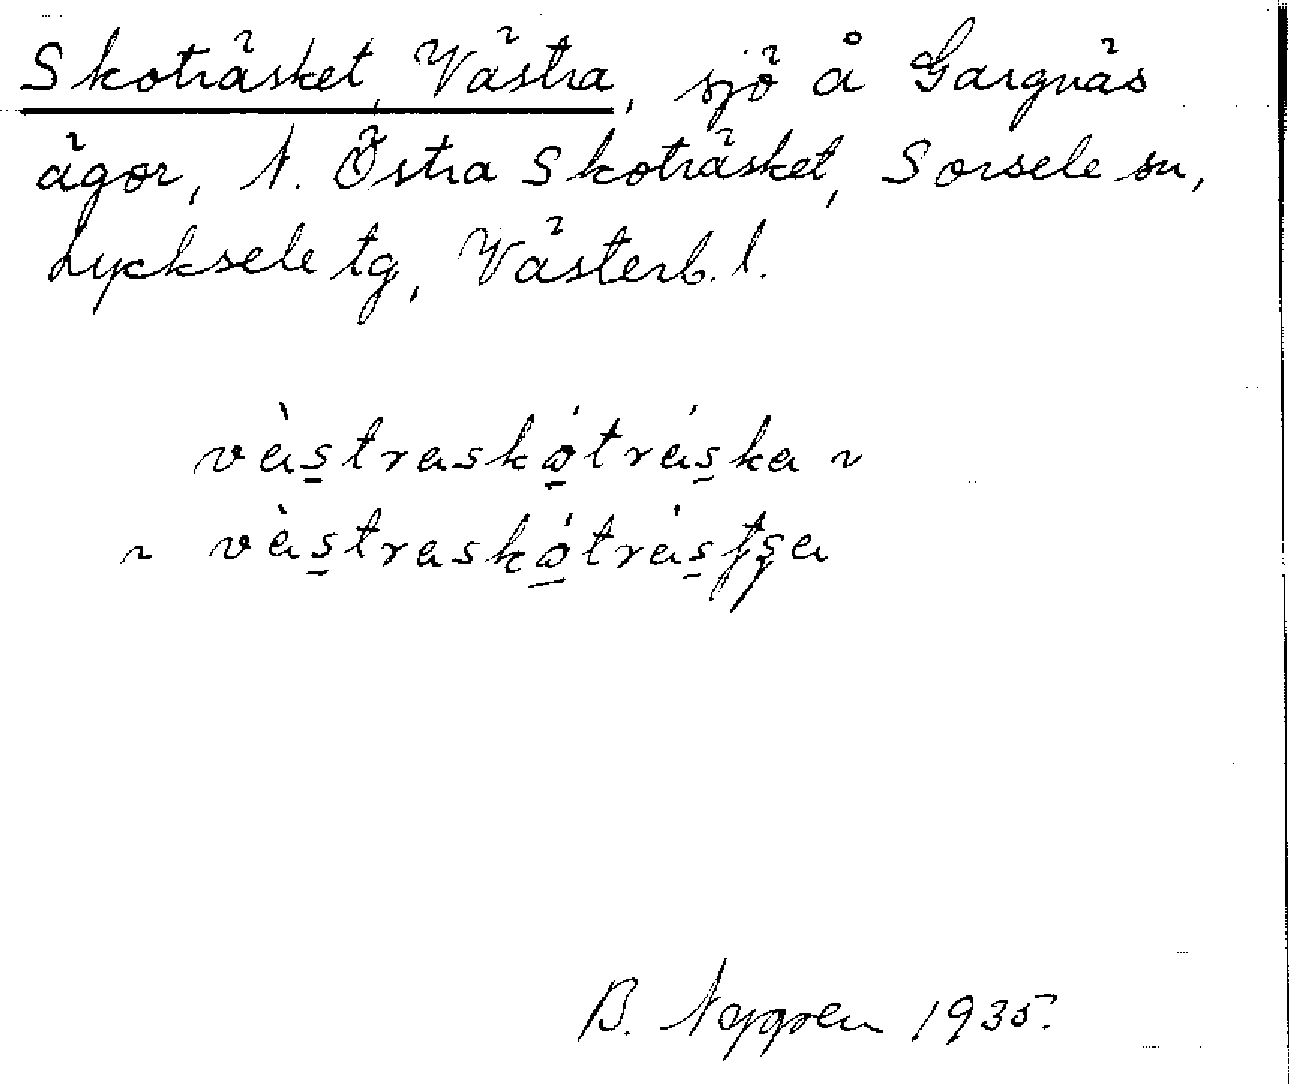 Skoträsket, Västra, sjö å Gargnäs
ägor, N. Östra Skoträsket, Sorsele sn,
Lycksele tg, Västerb. l.
vàs̲traskó̲trás̲ka ~
~ vàs̲traskó̲trás̲tʂa
B. Nygren 1935.